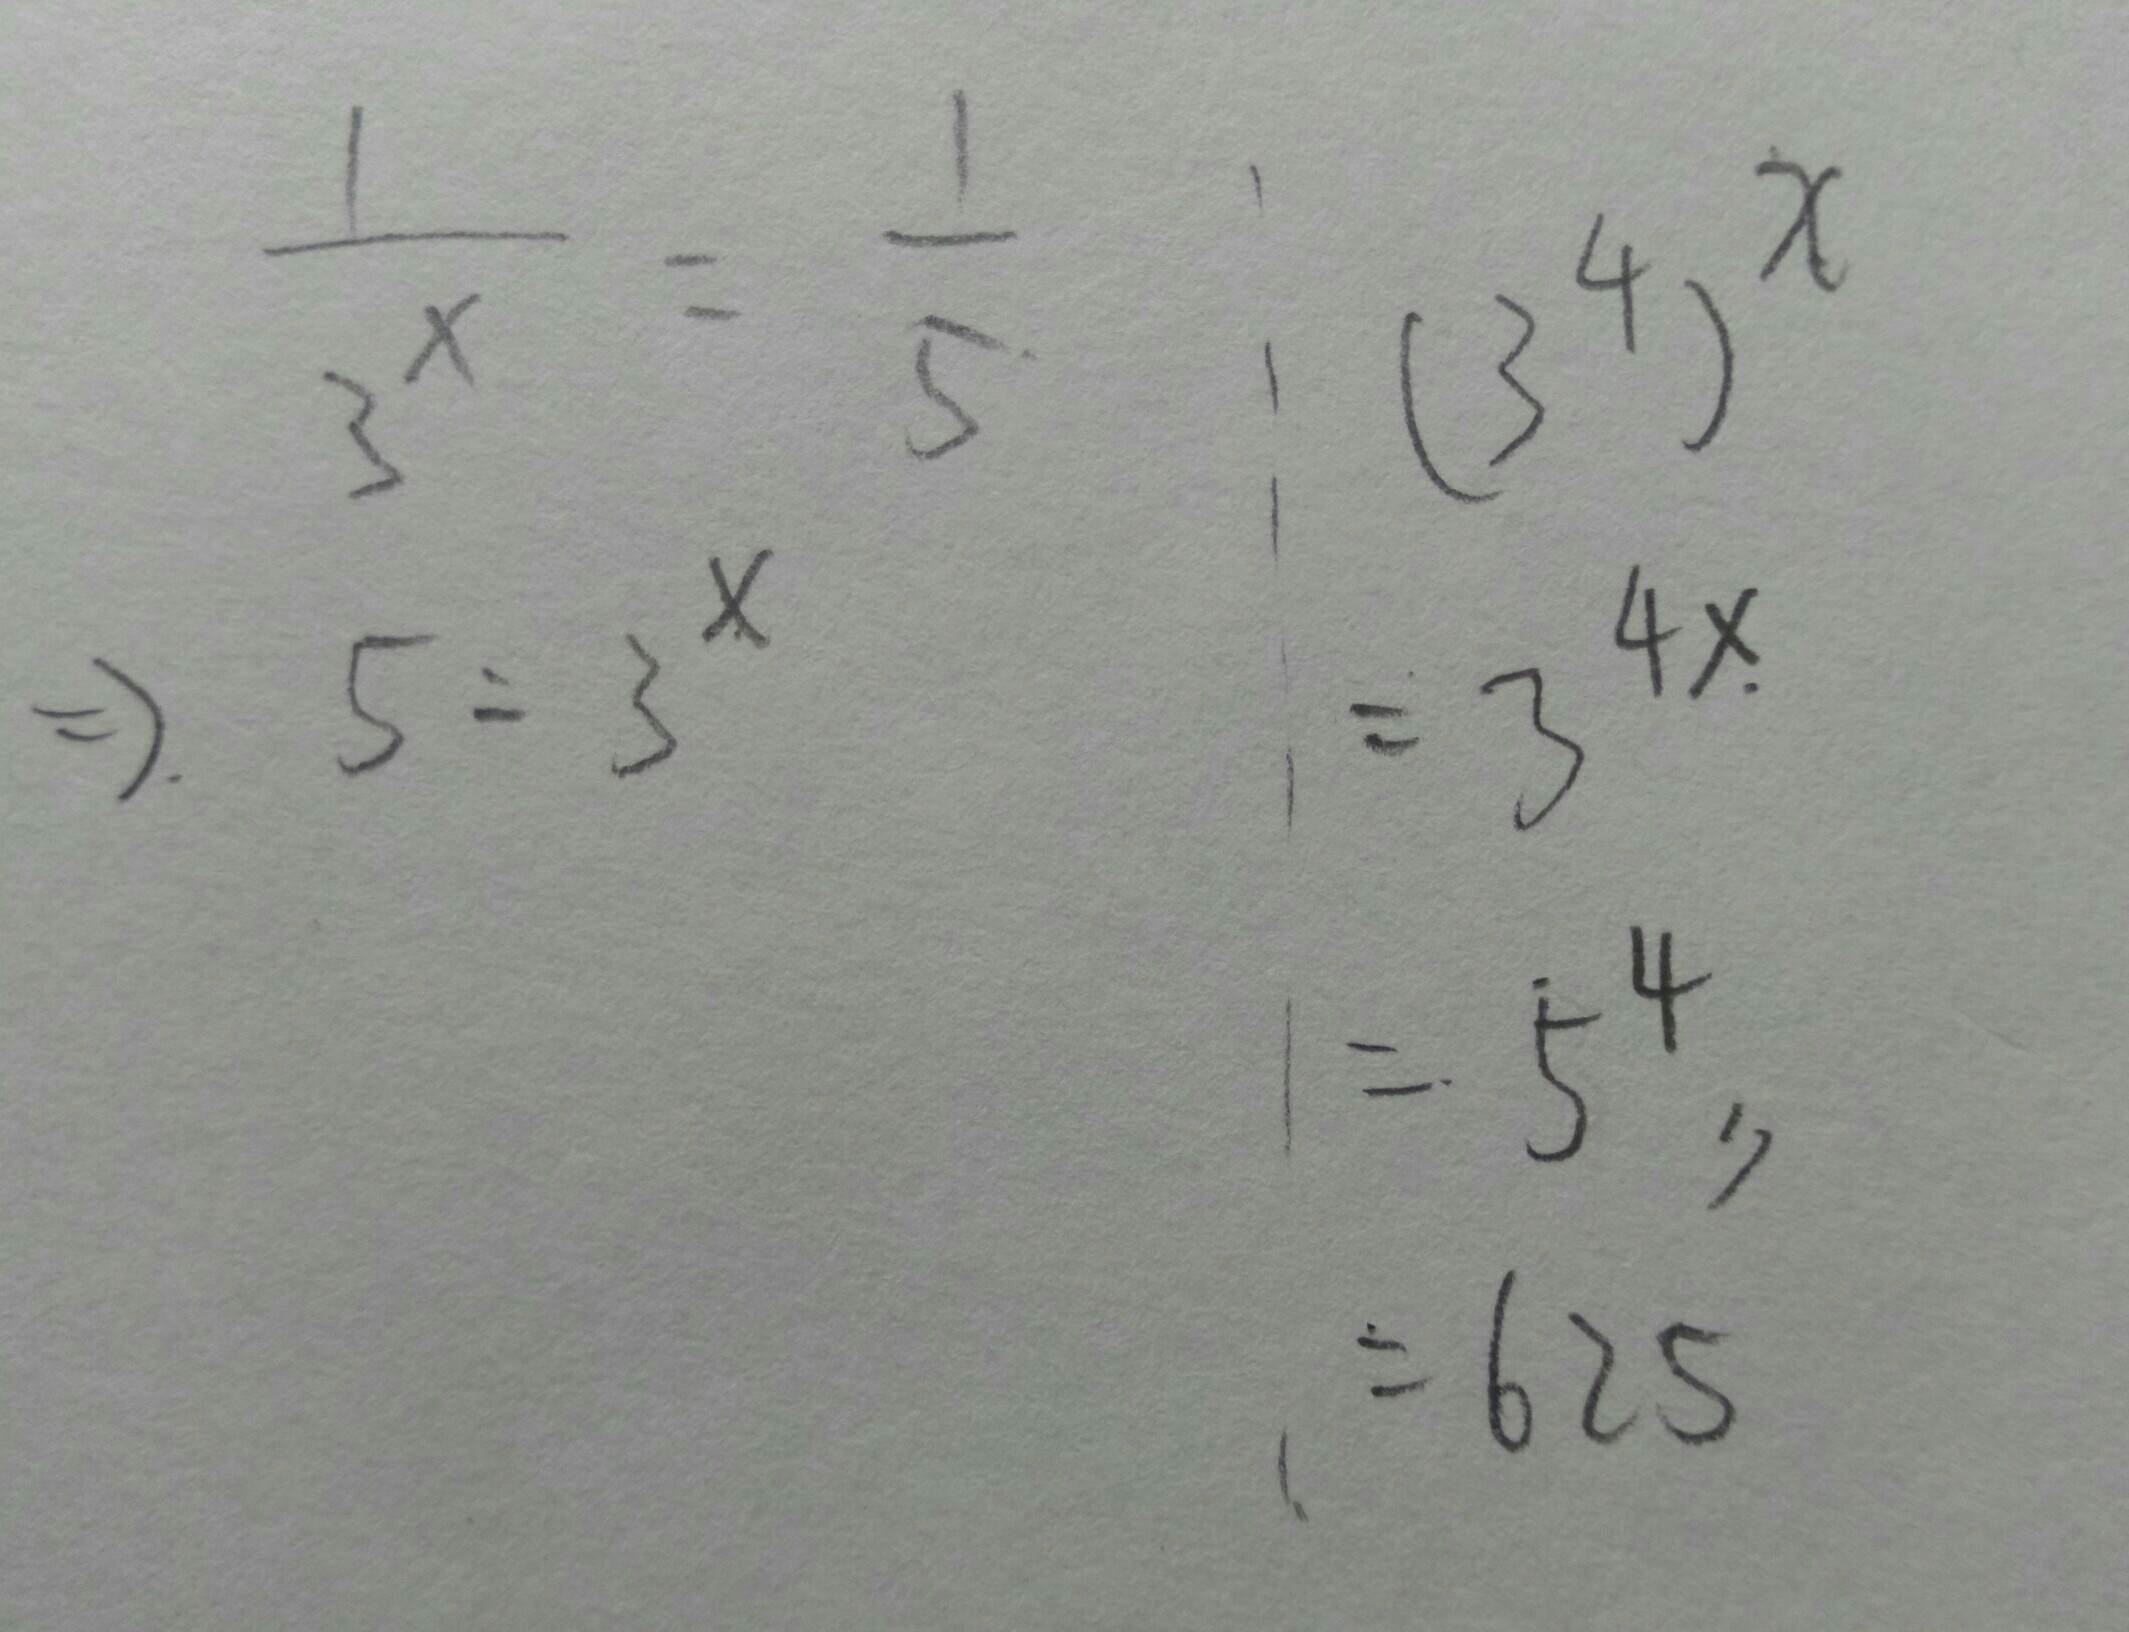 1/3^x = 1/5
⇒. 5 = 3^x
(3^4)^x
= 3^4x.
= 5^4 〃
= 625